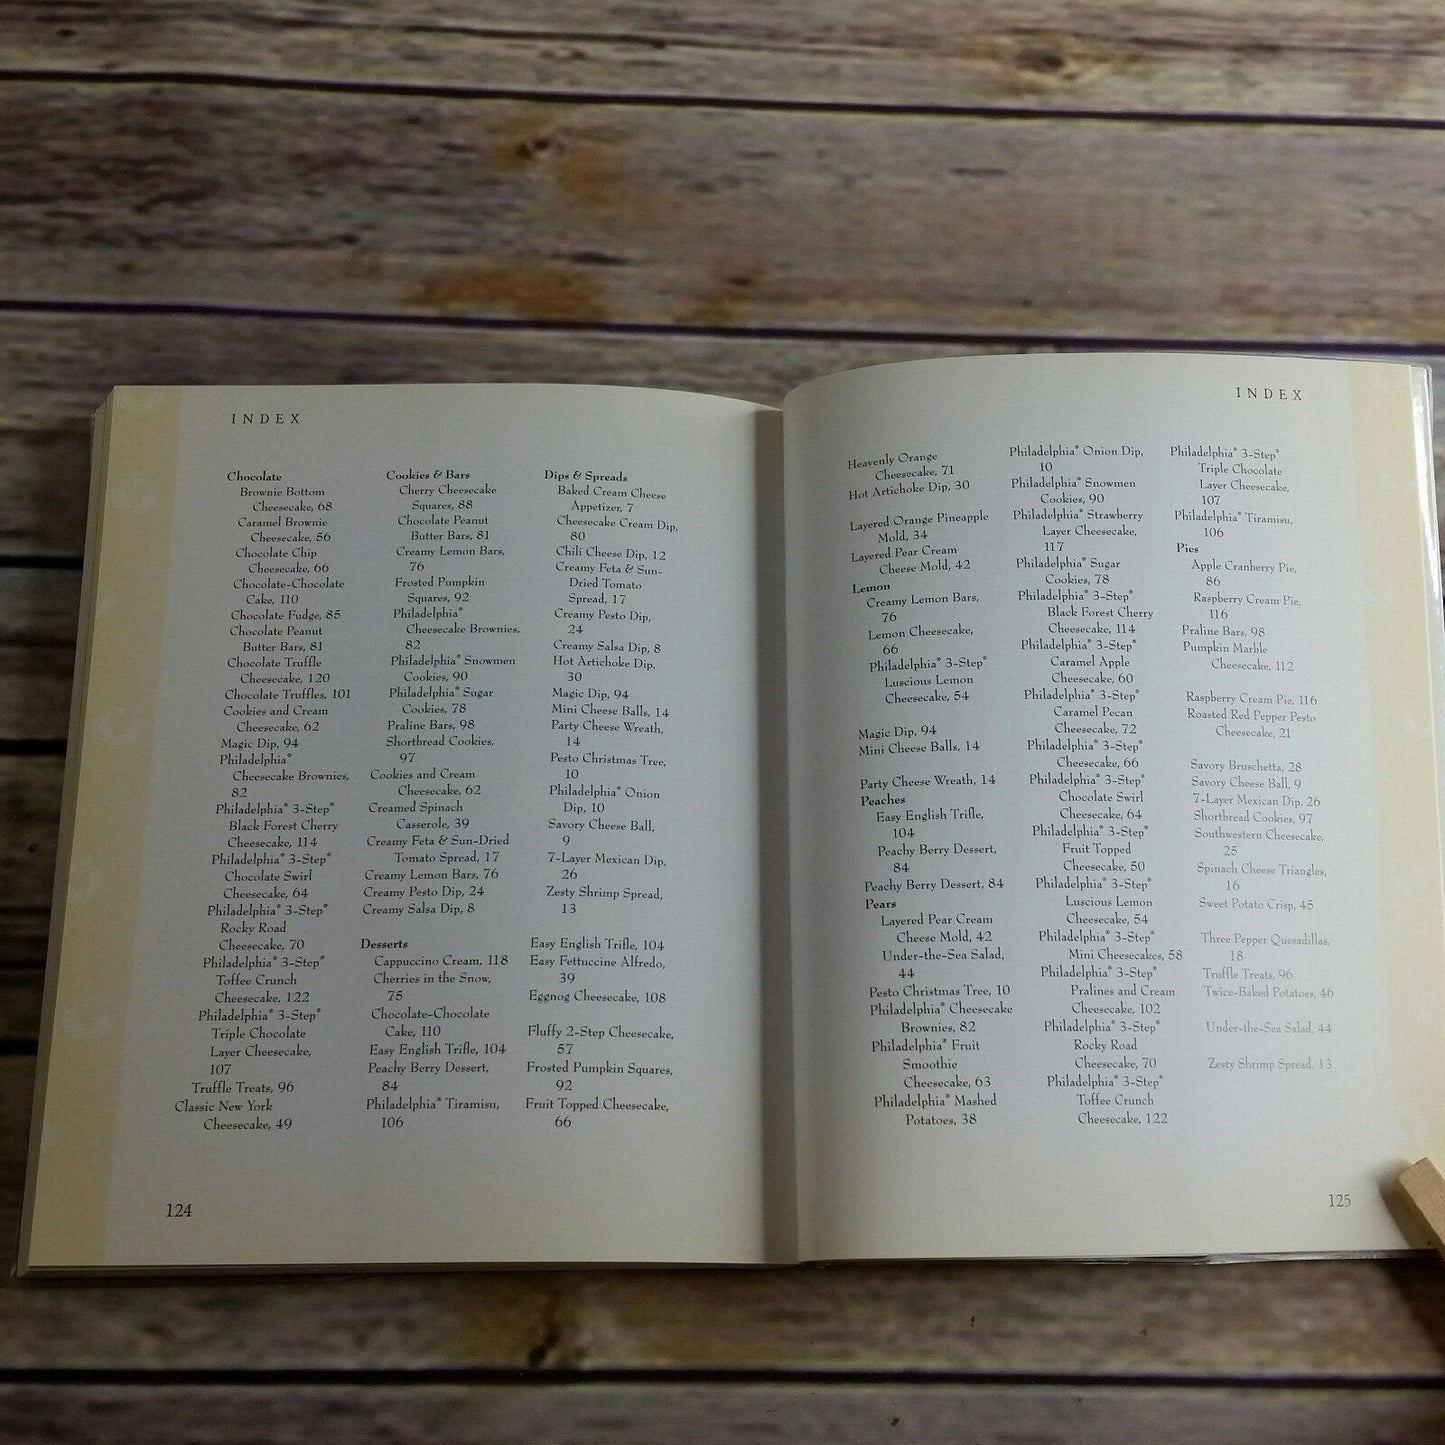 INDEX
Chocolate
Brownie Bottom
Cheesecake, 68
Caramel Brownie
Cheesecake, 56
Chocolate Chip
Cheesecake, 66
Chocolate-Chocolate
Cake, 110
Chocolate Fudge, 85
Chocolate Peanut
Butter Bars, 81
Chocolate Truffle
Cheesecake, 120
Chocolate Truffles, 101
Cookies and Cream
Cheesecake, 62
Magic Dip, 94
Philadelphia®
Cheesecake Brownies,
82
Philadelphia® 3-Step®
Black Forest Cherry
Cheesecake, 114
Philadelphia® 3-Step®
Chocolate Swirl
Cheesecake, 64
Philadelphia® 3-Step®
Rocky Road
Cheesecake, 70
Philadelphia® 3-Step®
Toffee Crunch
Cheesecake, 122
Philadelphia® 3-Step®
Triple Chocolate
Layer Cheesecake,
107
Truffle Treats, 96
Classic New York
Cheesecake, 49
Cookies & Bars
Cherry Cheesecake
Squares, 88
Chocolate Peanut
Butter Bars, 81
Creamy Lemon Bars,
76
Frosted Pumpkin
Squares, 92
Philadelphia®
Cheesecake Brownies,
82
Philadelphia® Snowmen
Cookies, 90
Philadelphia® Sugar
Cookies, 78
Praline Bars, 98
Shortbread Cookies,
97
Cookies and Cream
Cheesecake, 62
Creamed Spinach
Casserole, 39
Creamy Feta & Sun-Dried
Tomato Spread, 17
Creamy Lemon Bars, 76
Creamy Pesto Dip, 24
Creamy Salsa Dip, 8
Desserts
Cappuccino Cream, 118
Cherries in the Snow,
75
Chocolate-Chocolate
Cake, 110
Easy English Trifle, 104
Peachy Berry Dessert,
84
Philadelphia® Tiramisu,
106
Dips & Spreads
Baked Cream Cheese
Appetizer, 7
Cheesecake Cream Dip,
80
Chili Cheese Dip, 12
Creamy Feta & Sun-
Dried Tomato
Spread, 17
Creamy Pesto Dip,
24
Creamy Salsa Dip, 8
Hot Artichoke Dip,
30
Magic Dip, 94
Mini Cheese Balls, 14
Party Cheese Wreath,
14
Pesto Christmas Tree,
10
Philadelphia® Onion
Dip, 10
Savory Cheese Ball,
9
7-Layer Mexican Dip,
26
Zesty Shrimp Spread,
13
Easy English Trifle, 104
Easy Fettuccine Alfredo,
39
Eggnog Cheesecake, 108
Fluffy 2-Step Cheesecake,
57
Frosted Pumpkin Squares,
92
Fruit Topped Cheesecake,
66
124
INDEX
Heavenly Orange
Cheesecake, 71
Hot Artichoke Dip, 30
Layered Orange Pineapple
Mold, 34
Layered Pear Cream
Cheese Mold, 42
Lemon
Creamy Lemon Bars,
76
Lemon Cheesecake,
66
Philadelphia® 3-Step®
Luscious Lemon
Cheesecake, 54
Magic Dip, 94
Mini Cheese Balls, 14
Party Cheese Wreath, 14
Peaches
Easy English Trifle,
104
Peachy Berry Dessert,
84
Peachy Berry Dessert, 84
Pears
Layered Pear Cream
Cheese Mold, 42
Under-the-Sea Salad,
44
Pesto Christmas Tree, 10
Philadelphia® Cheesecake
Brownies, 82
Philadelphia® Fruit
Smoothie
Cheesecake, 63
Philadelphia® Mashed
Potatoes, 38
Philadelphia® Onion Dip,
10
Philadelphia® Snowmen
Cookies, 90
Philadelphia® Strawberry
Layer Cheesecake,
117
Philadelphia® Sugar
Cookies, 78
Philadelphia® 3-Step®
Black Forest Cherry
Cheesecake, 114
Philadelphia® 3-Step®
Caramel Apple
Cheesecake, 60
Philadelphia® 3-Step®
Caramel Pecan
Cheesecake, 72
Philadelphia® 3-Step®
Cheesecake, 66
Philadelphia® 3-Step®
Chocolate Swirl
Cheesecake, 64
Philadelphia® 3-Step®
Fruit Topped
Cheesecake, 50
Philadelphia® 3-Step®
Luscious Lemon
Cheesecake, 54
Philadelphia® 3-Step®
Mini Cheesecakes, 58
Philadelphia® 3-Step®
Pralines and Cream
Cheesecake, 102
Philadelphia® 3-Step®
Rocky Road
Cheesecake, 70
Philadelphia® 3-Step®
Toffee Crunch
Cheesecake, 122
Philadelphia® 3-Step®
Triple Chocolate
Layer Cheesecake,
107
Philadelphia® Tiramisu,
106
Pies
Apple Cranberry Pie,
86
Raspberry Cream Pie,
116
Praline Bars, 98
Pumpkin Marble
Cheesecake, 112
Raspberry Cream Pie, 116
Roasted Red Pepper Pesto
Cheesecake, 21
Savory Bruschetta, 28
Savory Cheese Ball, 9
7-Layer Mexican Dip, 26
Shortbread Cookies, 97
Southwestern Cheesecake,
25
Spinach Cheese Triangles,
16
Sweet Potato Crisp, 45
Three Pepper Quesadillas,
18
Truffle Treats, 96
Twice-Baked Potatoes, 46
Under-the-Sea Salad, 44
Zesty Shrimp Spread, 13
125